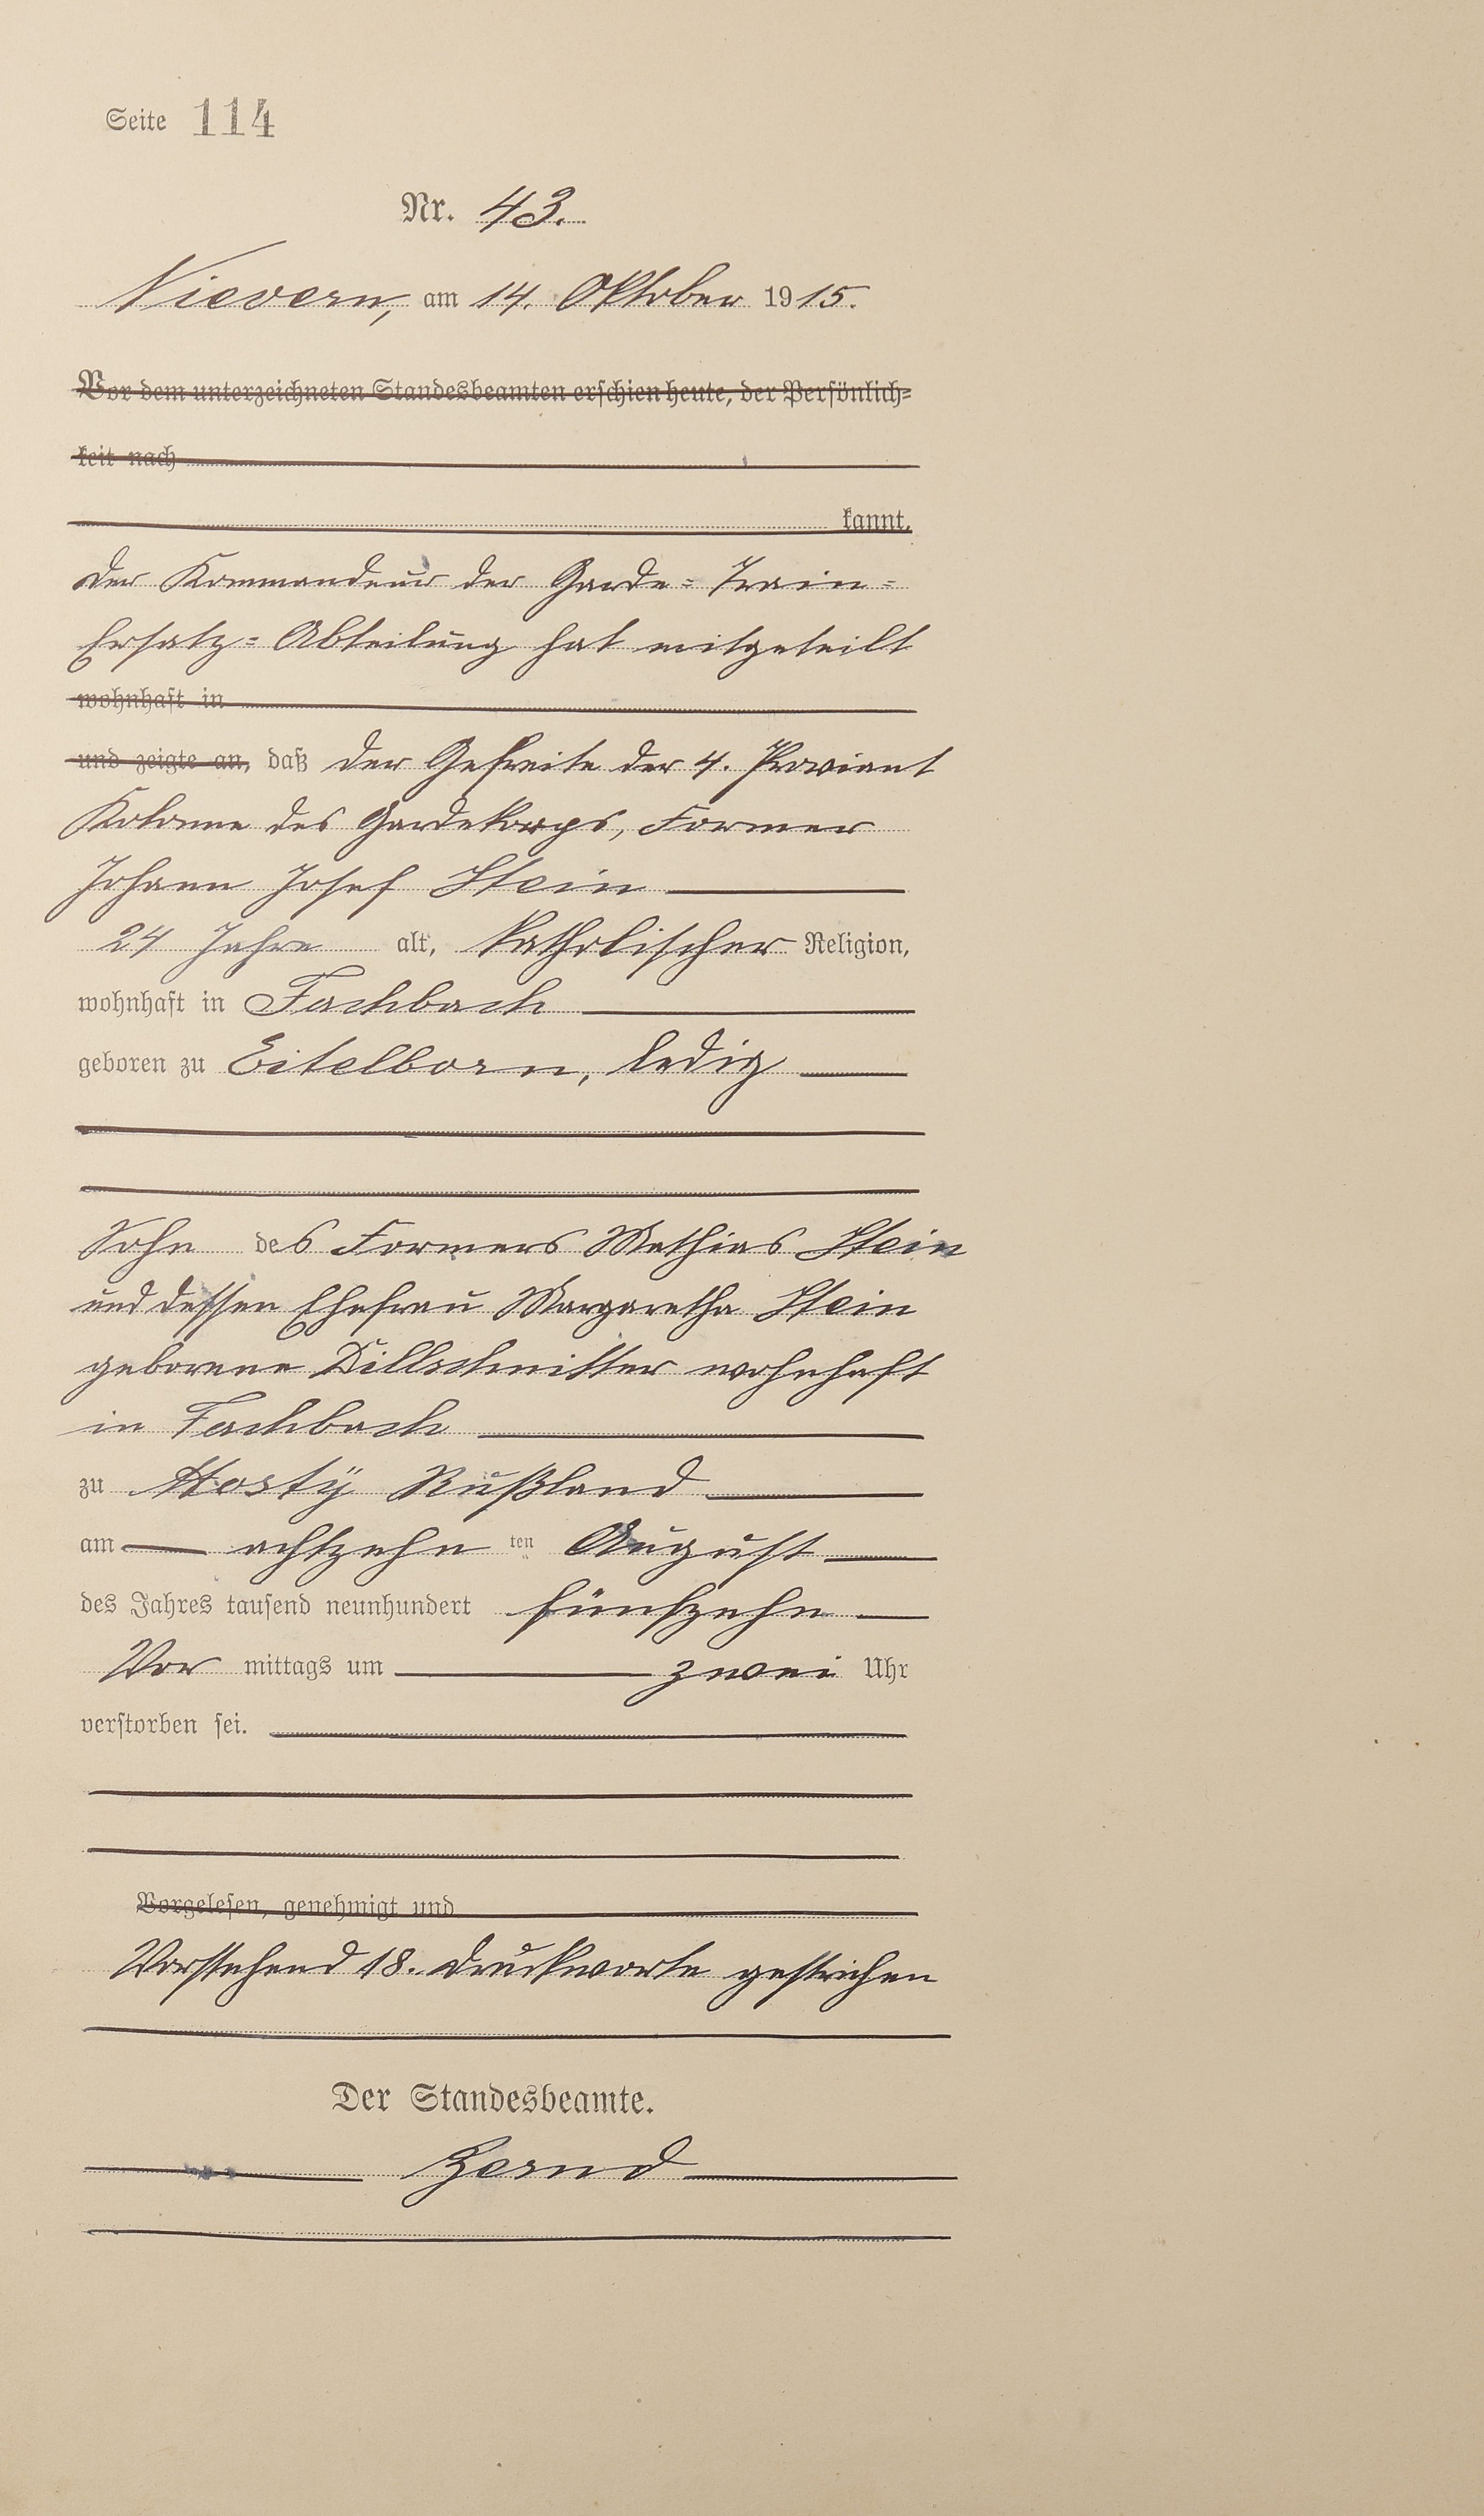 Seite 114
Nr. 43.
Nievern, am 14. Oktober 1915.
Vor dem unterzeichneten Standesbeamten erschien heute, der Persönlich-
keit nach
kannt,
Der Kommandeur der Garde-Train-
Ersatz-Abteilung hat mitgeteilt
wohnhaft in
und zeigte an, daß der Gefreite der 4. Proviant
Kolonne des Gardekorps, Former
Johann Josef Stein
24 Jahre alt, katholischer Religion,
wohnhaft in Fachbach
geboren zu Eitelborn, ledig
Sohn des Formers Mathias Stein
und dessen Ehefrau Margaretha Stein
geborene Dillschnitter wohnhaft
in Fachbach
zu Hosty Rußland
am achtzehn ten August
des Jahres tausend neunhundert fünfzehn
Vor mittags um zwei Uhr
verstorben sei.
Vorgelesen, genehmigt und
Vorstehend 18. Druckworte gestrichen
Der Standesbeamte.
Zernd